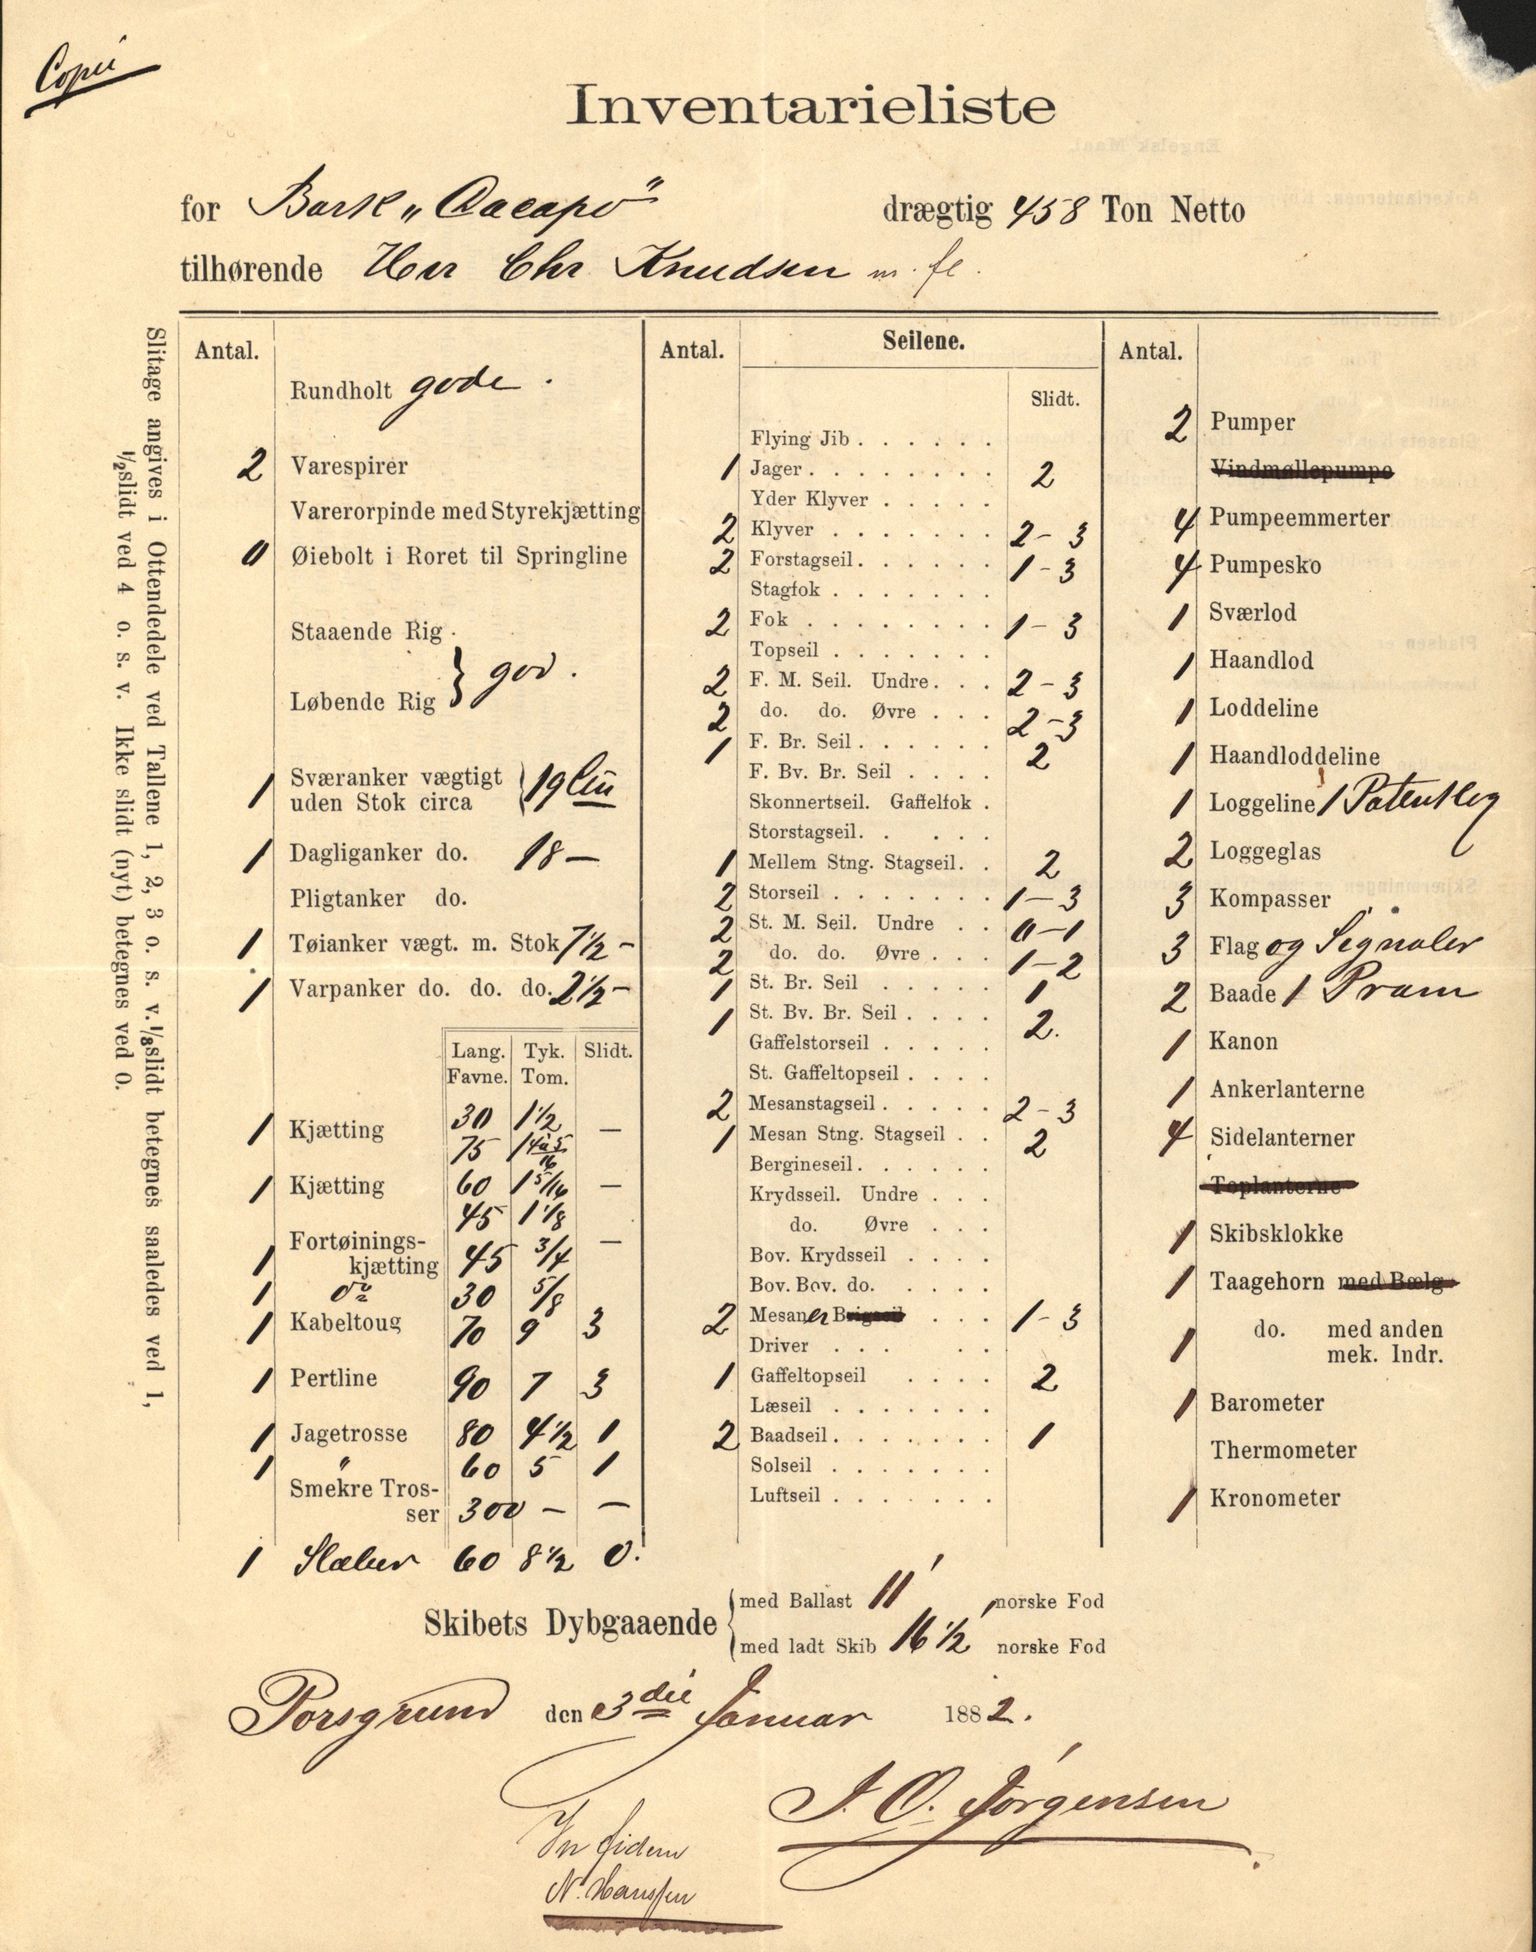 Copii
Inventarieliste
for Bark „Dacapo“ drægtig 458 Ton Netto
tilhørende Herr Chr Knudsen m. fl.
Slitage angives i Ottendedele ved Tallene 1, 2, 3 o. s. v. 1/8 slidt betegnes saaledes ved 1,
1/2 slidt ved 4 o. s. v. Ikke slidt (nyt) betegnes ved 0.
Antal.
Rundholt gode.
2 Varespirer
Varerorpinde med Styrekjætting
0 Øiebolt i Roret til Springline
Staaende Rig.
Løbende Rig } god.
1 Sværanker vægtigt
uden Stok circa 19
1 Dagliganker do. 18 —
Pligtanker do.
1 Tøianker vægt. m. Stok 7 1/2 —
1 Varpanker do. do. do. 2 1/2 —
Lang. Tyk. Slidt.
Favne. Tom.
30 1 1/2
1 Kjætting —
75 1 4 à 5/16
1 Kjætting 60 1 5/16 —
45 1 1/8
Fortøinings- —
1 kjætting 45 3/4
1 do 30 5/8
1 Kabeltoug 70 9 3
1 Pertline 90 7 3
1 Jagetrosse 80 4 1/2 1
1 " 60 5 1
Smekre Tros-
ser 300 — —
1 Slæber 60 8 1/2 0.
Antal. Seilene.
Slidt.
Flying Jib
1 Jager 2
Yder Klyver
2 Klyver 2 - 3
2 Forstagseil 1 - 3
Stagfok
2 Fok 1 - 3
Topseil
2 F. M. Seil. Undre 2 - 3
2 do. do. Øvre 2 - 3
1 F. Br. Seil 2
F. Bv. Br. Seil
Skonnertseil. Gaffelfok
Storstagseil
1 Mellem Stng. Stagseil 2
2 Storseil 1 - 3
2 St. M. Seil. Undre 0 - 1
2 do. do. Øvre 1 - 2
1 St. Br. Seil 1
1 St. Bv. Br. Seil 2.
Gaffelstorseil
St. Gaffeltopseil
2 Mesanstagseil 2 - 3
1 Mesan Stng. Stagseil 2
Bergineseil
Krydsseil. Undre
do. Øvre
Bov. Krydsseil
Bov. Bov. do.
2 Mesaner Brigseil 1 - 3
Driver
1 Gaffeltopseil 2
Læseil
2 Baadseil 1
Solseil
Luftseil
Antal.
2 Pumper
Vindmøllepumpe
4 Pumpeemmerter
4 Pumpesko
1 Sværlod
1 Haandlod
1 Loddeline
1 Haandloddeline
1 Loggeline 1 Patentlog
2 Loggeglas
3 Kompasser
3 Flag og Signaler
2 Baade 1 Pram
1 Kanon
1 Ankerlanterne
4 Sidelanterner
Toplanterne
1 Skibsklokke
1 Taagehorn med Bælg
1 do. med anden
mek. Indr.
1 Barometer
Thermometer
1 Kronometer
Skibets Dybgaaende
med Ballast 11' norske Fod
med ladt Skib 16 1/2' norske Fod
Porsgrund den 3die Januar 1882.
J. C. Jörgensen
In fidem
N. Hanssen